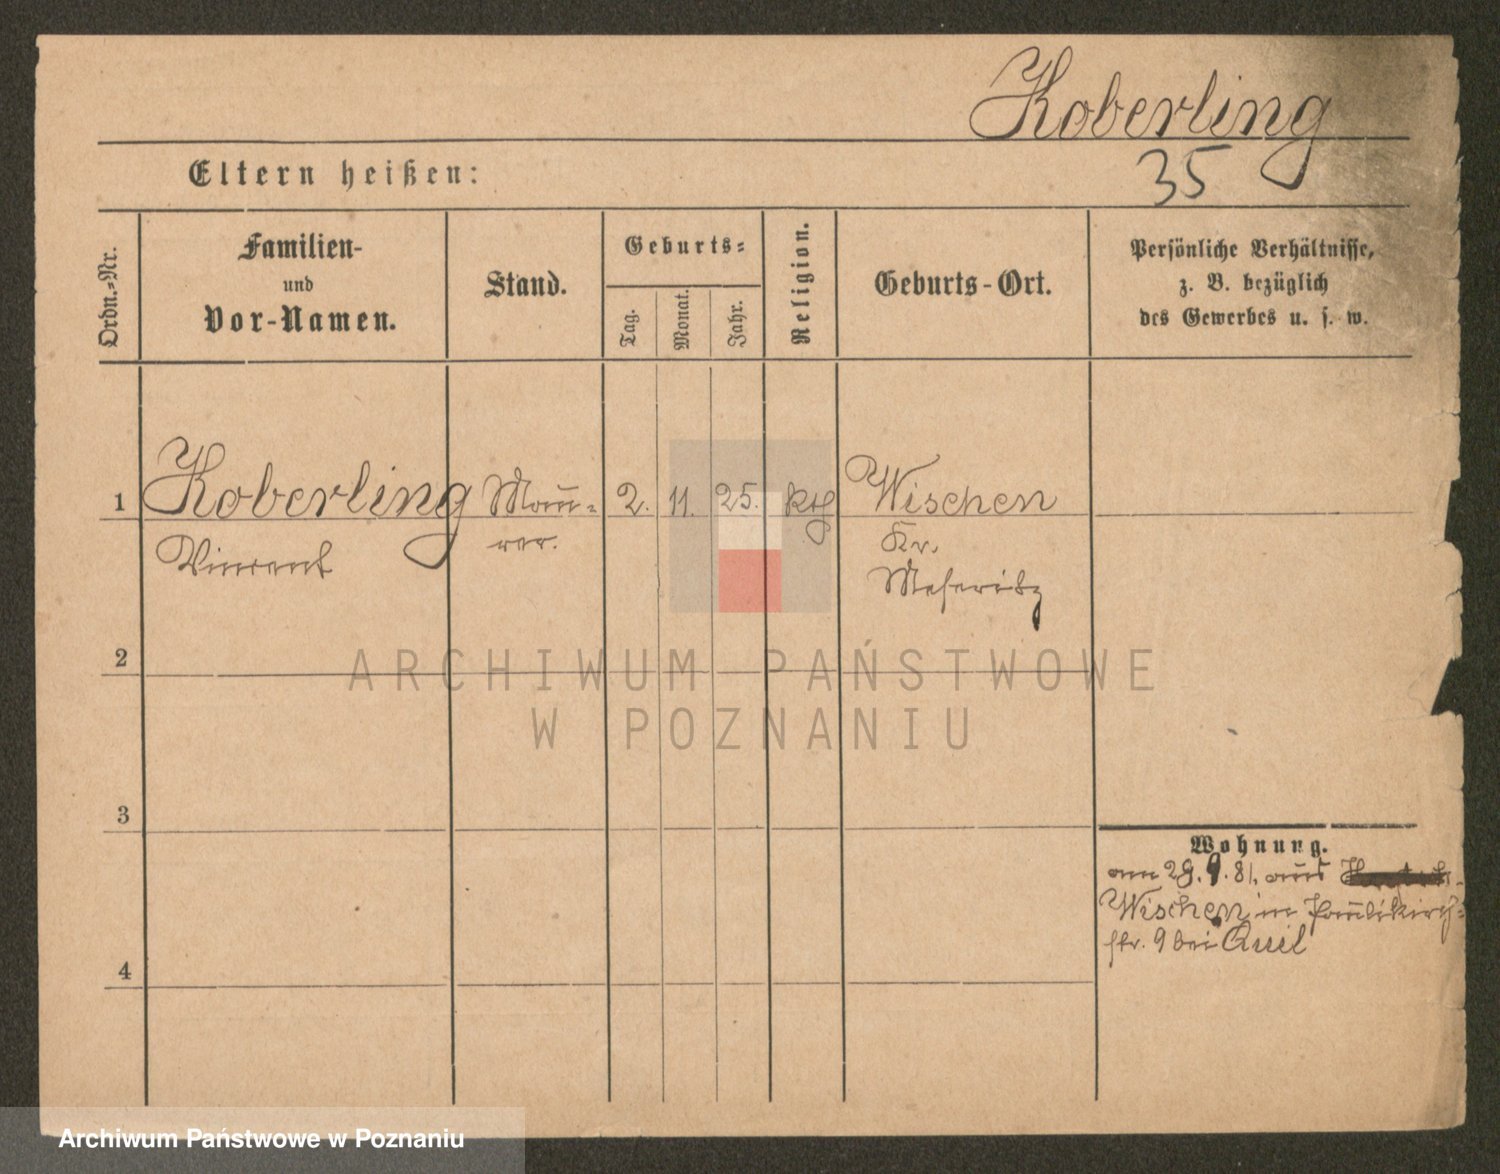 Koberling
35
Eltern heißen:
Ordn.-Nr.
Familien-
und
Vor-Namen.
Stand.
Geburts-
Tag.
Monat.
Jahr.
Religion.
Geburts-Ort.
Persönliche Verhältnisse,
z. B. bezüglich
des Gewerbes u. s. w.
1
Koberling
Vincent
Mau-
rer.
2.
11.
25.
kth
Wischen
Kr.
Meseritz
2
ARCHIWUM PAŃSTWOWE
W POZNANIU
3
Wohnung.
am 29.9.81. aus
Wischen in Paulikirch-
str. 9 bei Quil
4
Archiwum Państwowe w Poznaniu